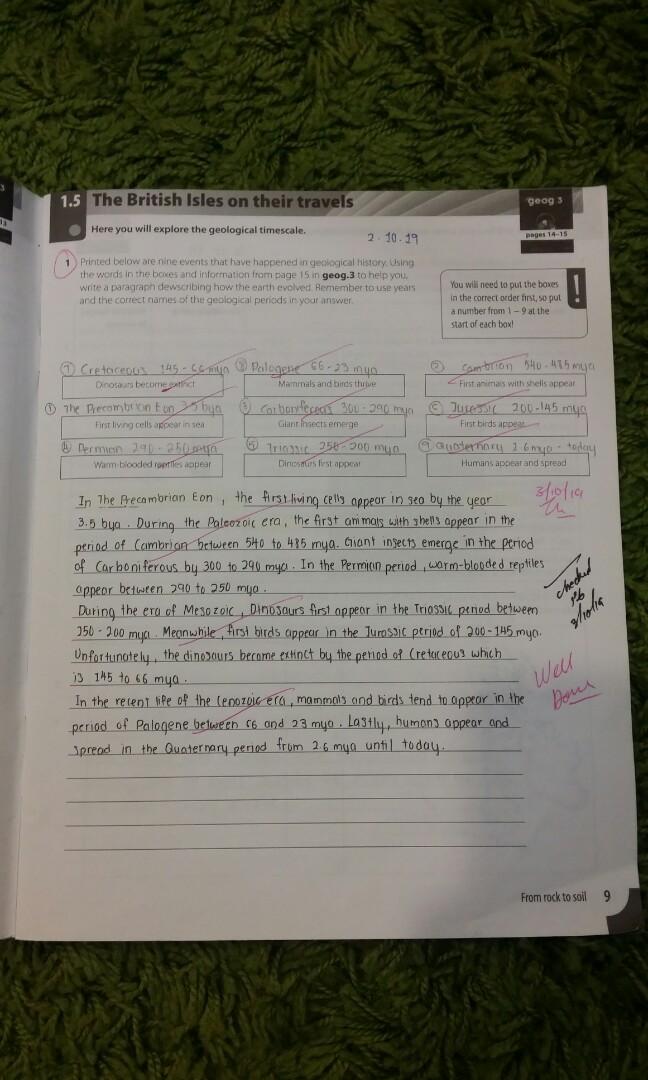 1.5 The British Isles on their travels
geog 3
Here you will explore the geological timescale.
2.10.19
pages 14-15
1 Printed below are nine events that have happened in geological history. Using
the words in the boxes and information from page 15 in geog.3 to help you,
write a paragraph dewscribing how the earth evolved. Remember to use years
and the correct names of the geological periods in your answer.
You will need to put the boxes
in the correct order first, so put
a number from 1 – 9 at the
start of each box!
!
⑦ Cretaceous 145 - 66 mya ⑧ Palogene 66 - 23 mya ② Cambrian 540 - 485 mya
Dinosaurs become extinct Mammals and birds thrive First animals with shells appear
① The Precambrian Eon 3.5 bya ③ Carboniferous 300 - 290 mya ⑥ Jurassic 200-145 mya
First living cells appear in sea Giant insects emerge First birds appear
④ Permian 290 - 250 mya ⑤ Triassic 250 - 200 mya ⑨ Quaternary 2.6 mya - today
Warm-blooded reptiles appear Dinosaurs first appear Humans appear and spread
In The Precambrian Eon , the first living cells appear in sea by the year
3.5 bya . During the Paleozoic era, the first animals with shells appear in the
period of Cambrian between 540 to 485 mya. Giant insects emerge in the period
of Carboniferous by 300 to 290 mya . In the Permian period , warm-blooded reptiles
appear between 290 to 250 mya .
During the era of Mesozoic , Dinosaurs first appear in the Triassic period between
250 - 200 mya . Meanwhile , first birds appear in the Jurassic period of 200-145 mya.
Unfortunately , the dinosaurs become extinct by the period of Cretaceous which
is 145 to 66 mya .
In the recent life of the Cenozoic era , mammals and birds tend to appear in the
period of Palogene between 66 and 23 mya . Lastly, humans appear and
spread in the Quaternary period from 2.6 mya until today.
3/10/19
checked
3/10/19
Well
Done
From rock to soil 9